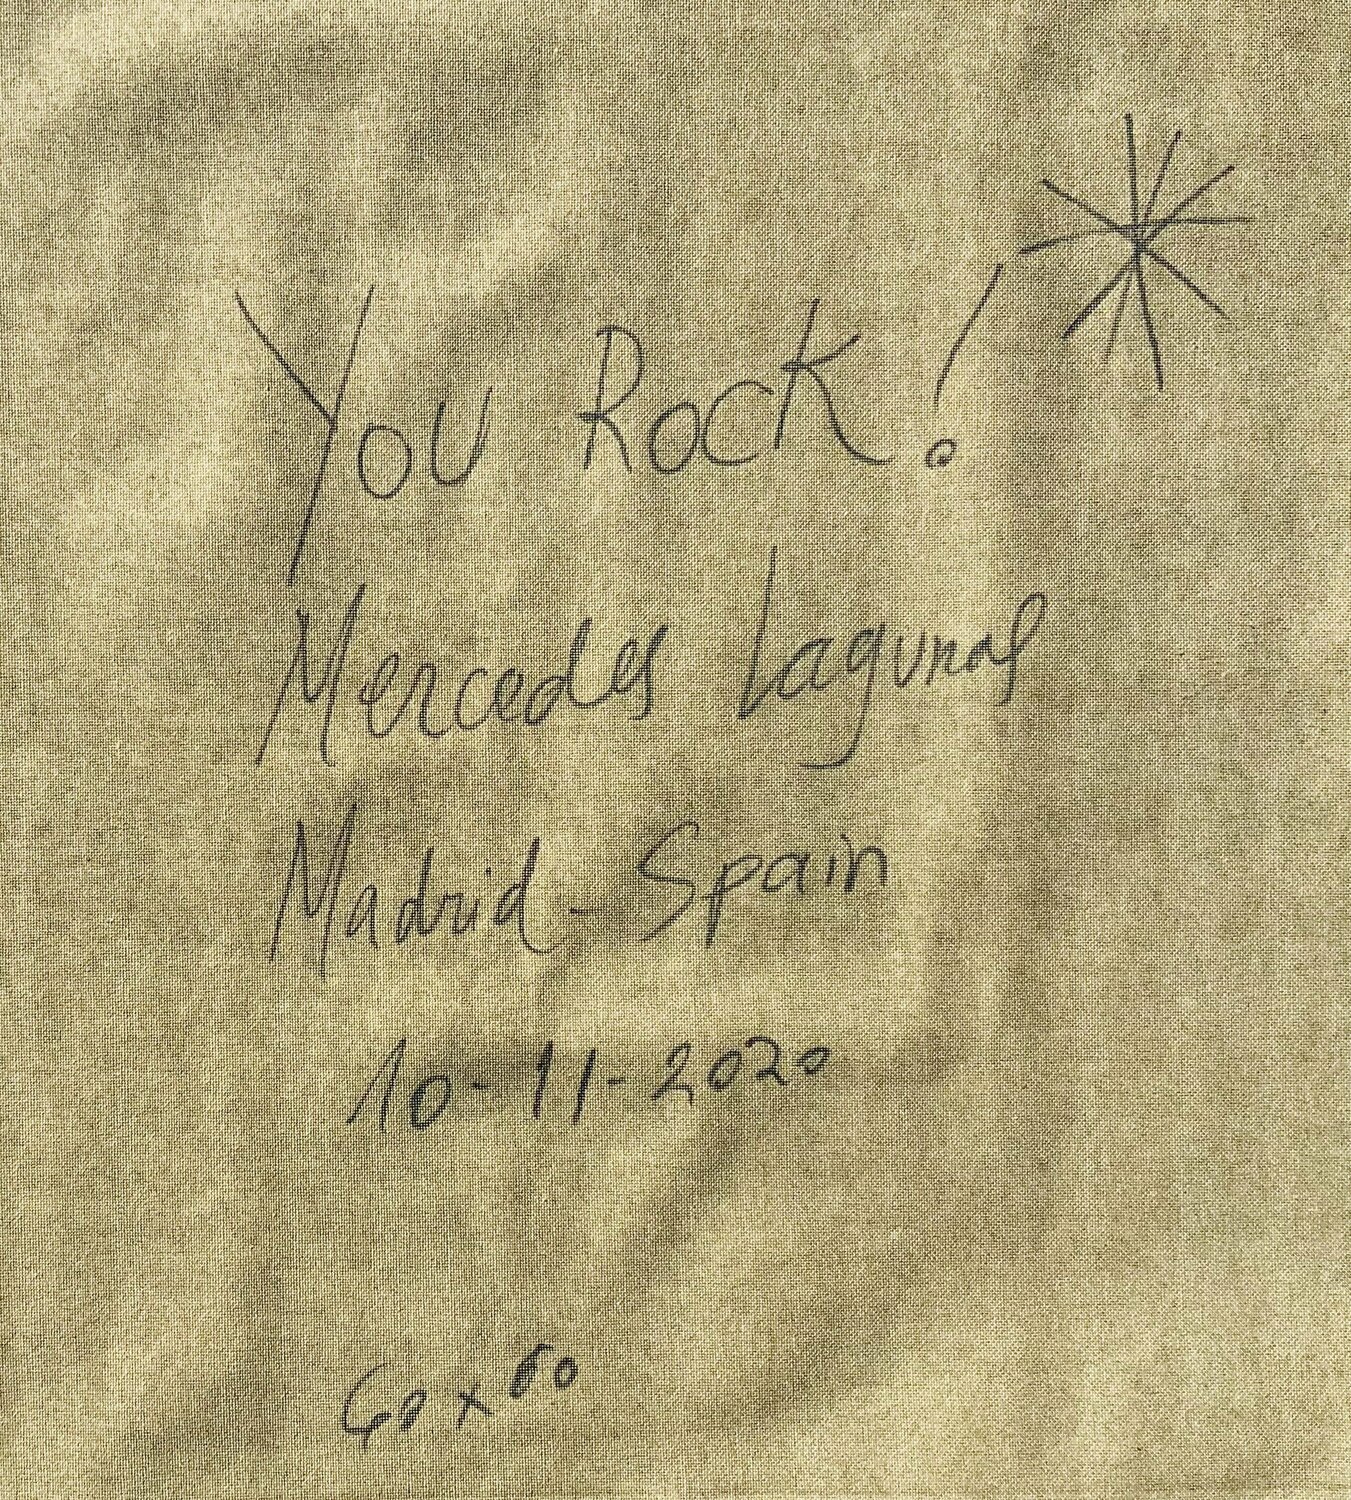 You Rock!
Mercedes Lagunas
Madrid - Spain
10-11-2020
60x60